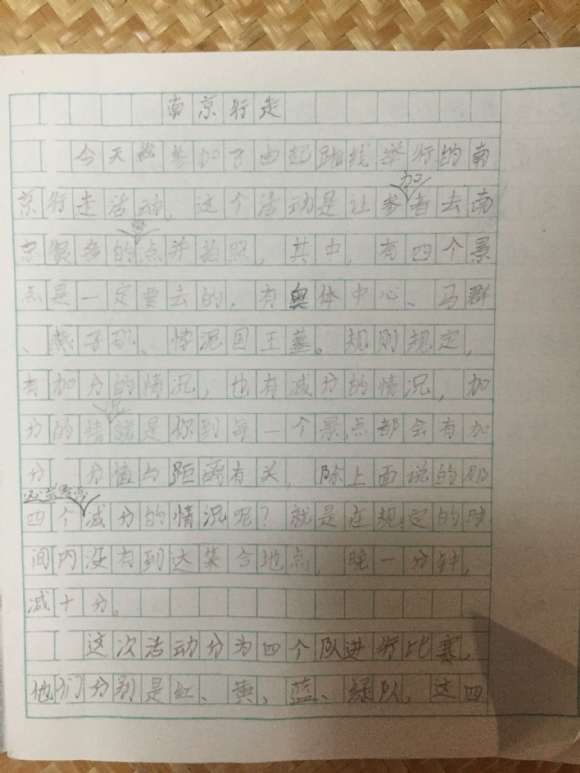 南京行走
今天我参加了由起跑线举行的南
京行走活动，这个活动是让参加者去南
京很多的景点并拍照，其中，有四个景
点是一定要去的，有奥体中心、马群
、燕子矶、浡泥国王墓。规则规定，
有加分的情况，也有减分的情况，加
分的情况就是你到每一个景点都会有加
分，分值与距离有关，除上面说的那
四个 减分的情况呢？就是在规定的时
间内没有到达集合地点，晚一分钟，
减十分。
这次活动分为四个队进行比赛，
他们分别是红、黄、蓝、绿队，这四